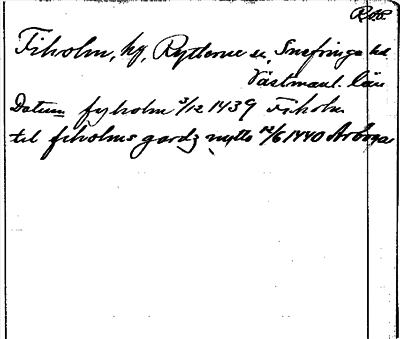 Fiholm, hg, Rytterne sn, Snefringe hd
Västmanl. län
Datum fyholm 3/12 1439 Fiholm
til fiholms gardz nytto 12/6 1440 Arboga